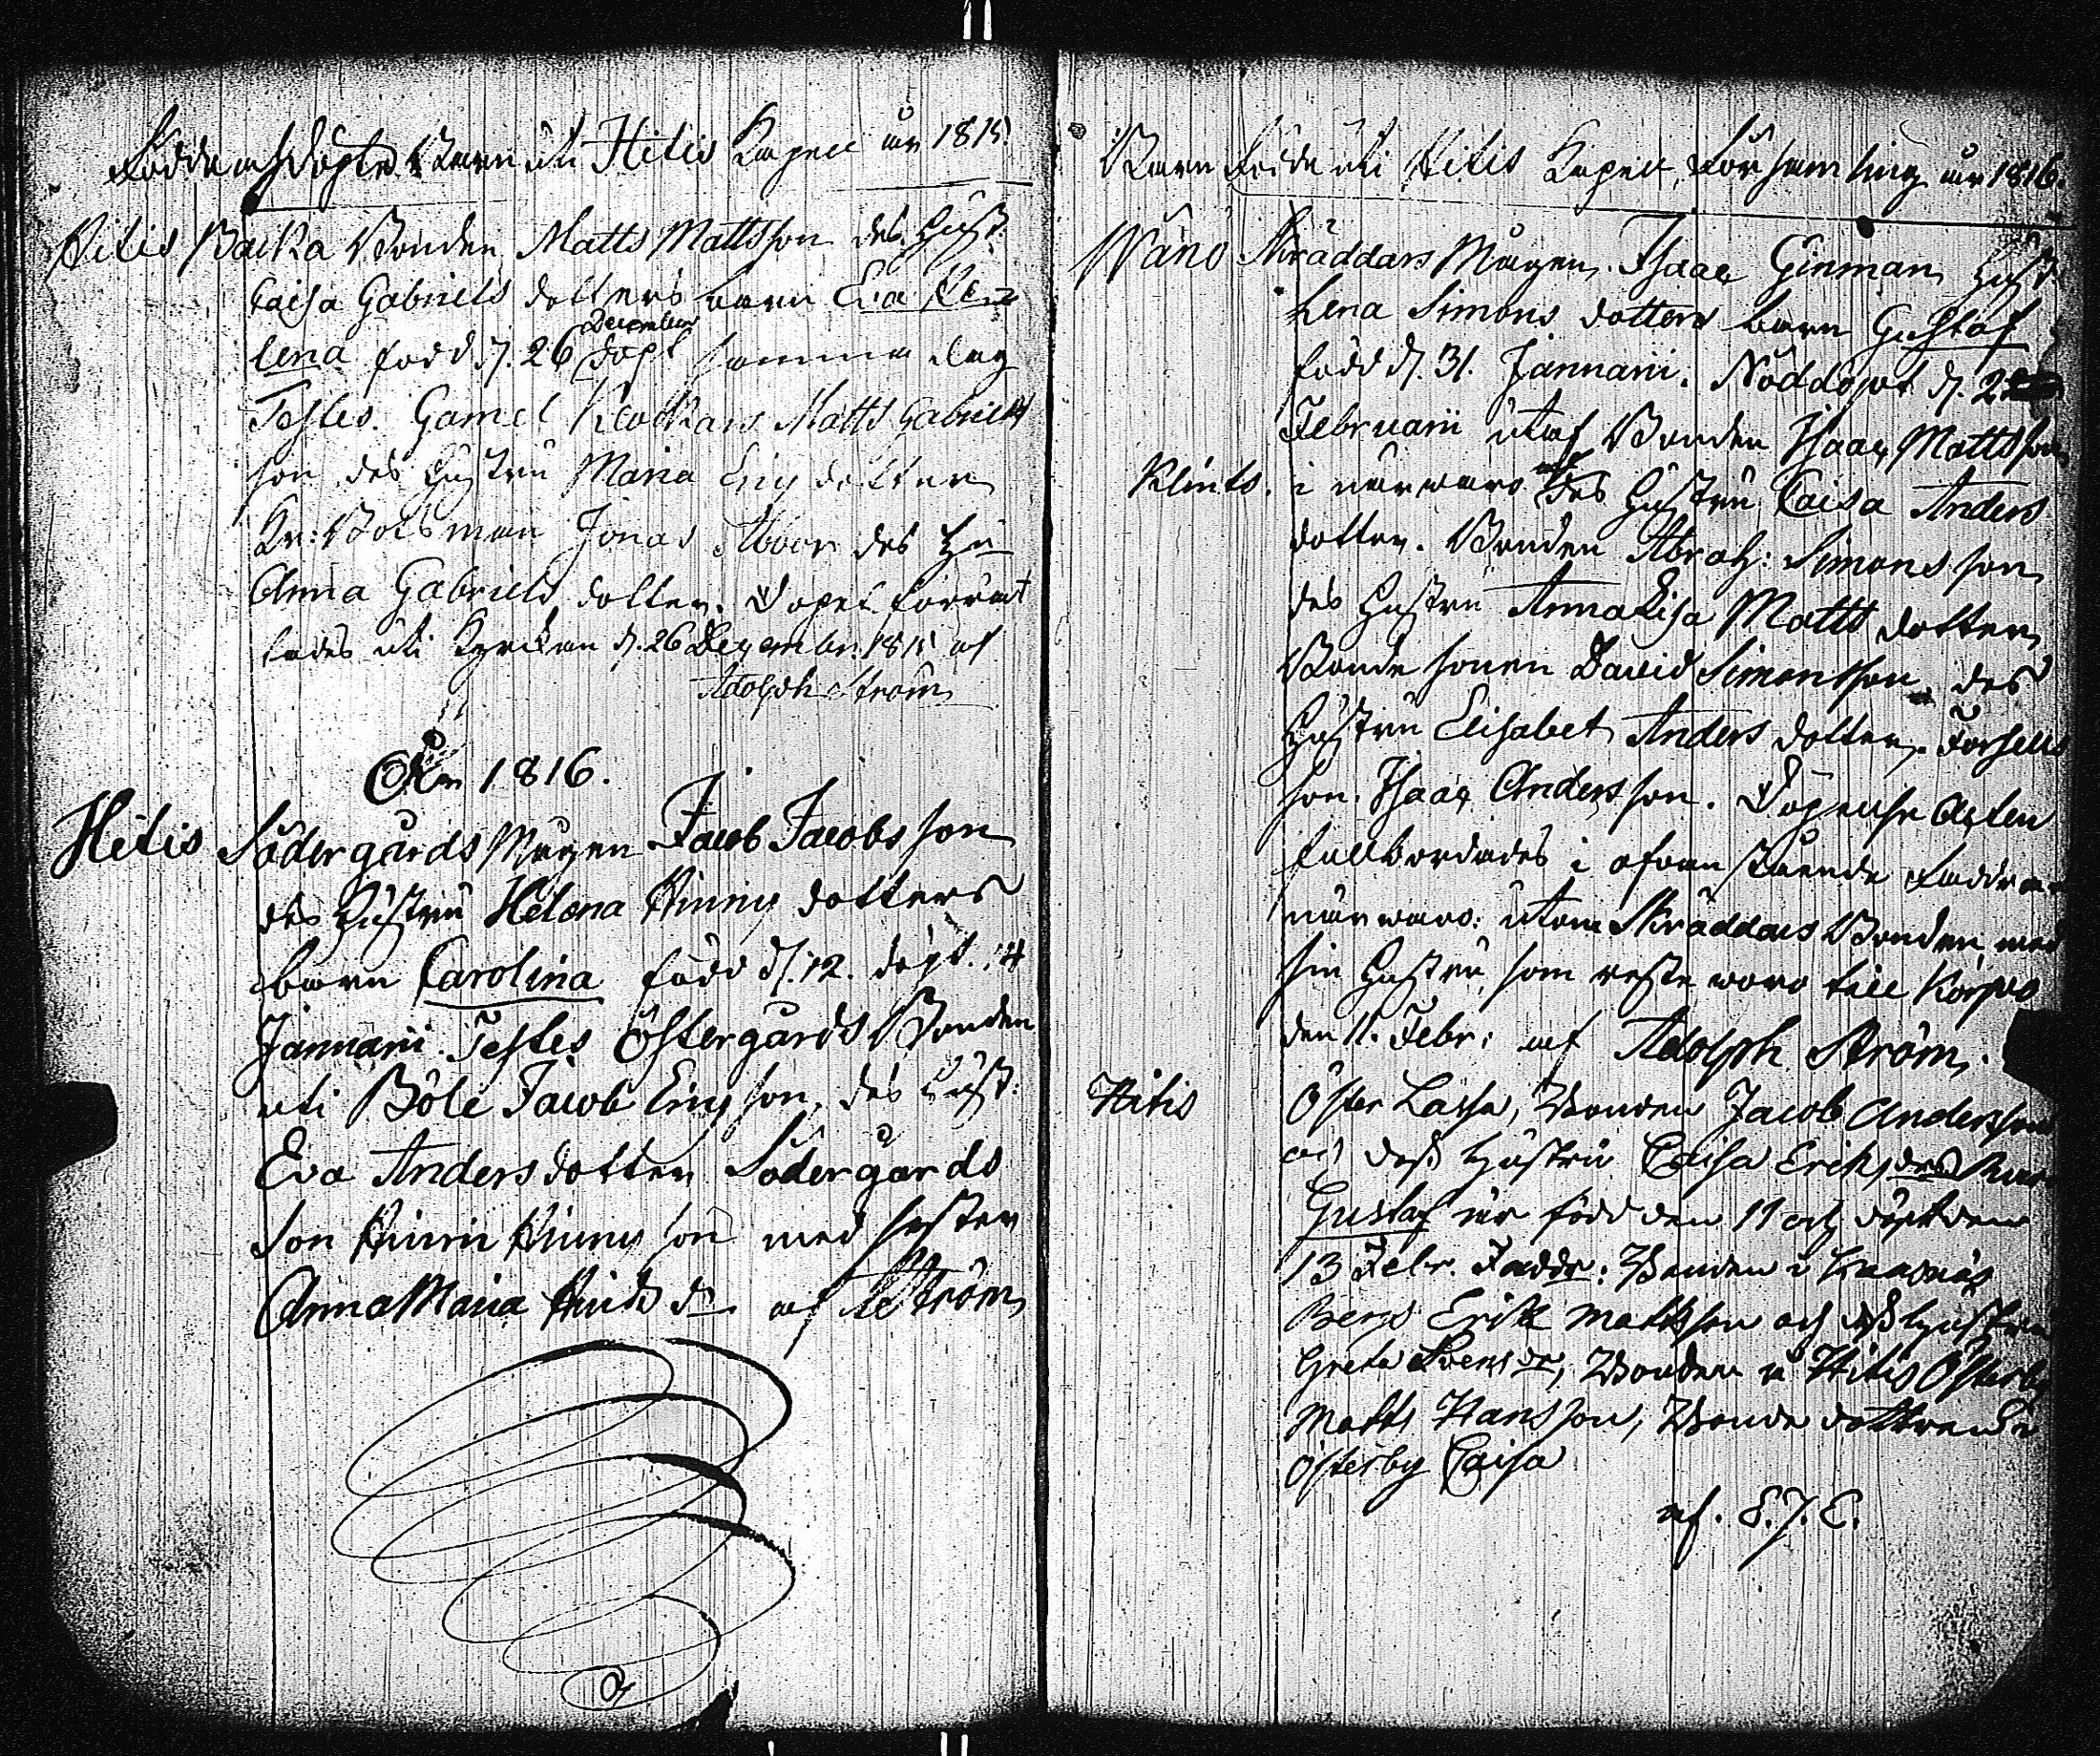 Födde och Döpte Barn uti Hitis Capell år 1815.
Hitis Backa Bonden Matts Mattsson des Hust:
Caisa Gabriels dotters barn Eva
lena född d. 26 December döpt samma dag
Testes. Gamel Klockars Matts Gabriels
son des Hustru Maria Erics dotter
Kr: Botsman Jonas des Hu
Anna Gabriels dotter. Döpel förrät
tades uti Kyrckan d. 26 December 1815 af
Adolph Ström
År 1816.
Hitis Södergårds Mågen Jacob Jacobsson
des Hustru Helena Hinrics dotters
barn Carolina född d. 12. döpt. 14
Januarii. Testes Östergårds Bonden
uti Böle Jacob Ericsson, des Hust:
Eva Anders dotter Södergårds
Son Hinric Hinrics son med syster
Anna Maria Hinrics dr af A Ström
Barn födde uti Hitis Capell Församling år 1816.
Wänö Skräddars Mågen Isaac Ginman Hust:
Lena Simons dotters barn Gustaf
född d. 31. Januarii. Nöddöpt d. 2
Februarii utaf Bonden Isaac Mattsson
Klints. i närwaro af des Hustru Caisa Anders
dotter. Bonden Abrah: Simons son
des Hustru Anna Lisa Matts dotter
Bonde sonen David Simonsson des
Hustru Elisabet Anders dotter.
son. Isaac Andersson. Döpelse Acten
fullbordades i ofvan stående Faddrar
närwaro: utom Skräddars Bonden med
sin Hustru, som reste woro till Korpo
den 11. Febr: af Adolph Ström.
Hitis Öster Lassa, Bonden Jacob Andersson
och dess Hustru Caisa Eriks drs Barn
Gustaf är född den 11 och döpt den
13 Febr. Faddr: Bonden i
Bergs Erik Mattsson och dess Hustru
Greta Svens dr, Bonden i Hitis Österby
Matts Hansson, Bonde dottren i
Österby Caisa
af. E. J. E.